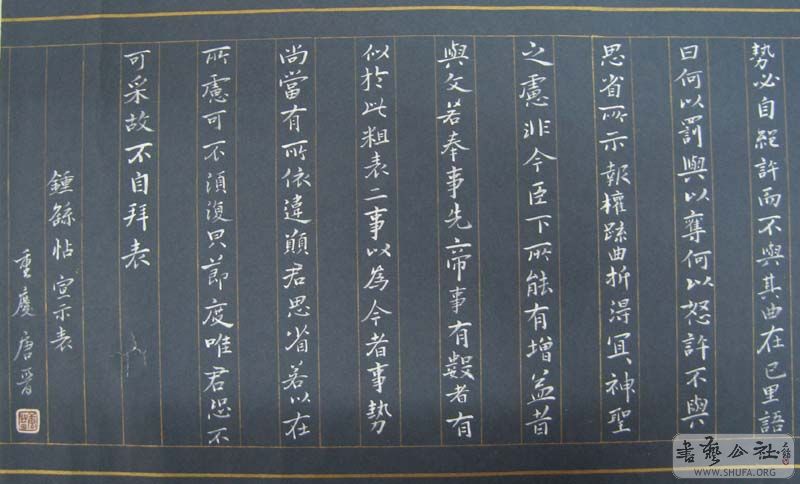 勢必自絕許而不與其曲在己里語
曰何以罰與以奪何以怒許不與
思省所示報權疏曲折得宜神聖
之慮非今臣下所能有增益昔
與文若奉事先帝事有數者有
似於此粗表二事以為今者事勢
尚當有所依違願君思省若以在
所慮可不須復只節度唯君恐不
可采故不自拜表
鍾繇帖宣示表
重慶唐晉
書藝公社
WWW.SHUFA.ORG